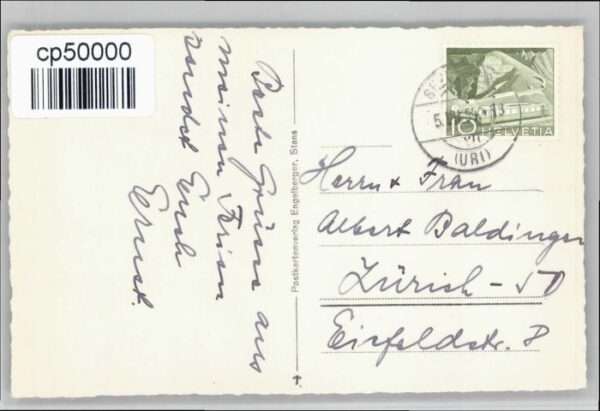 cp50000
Beste Grüsse aus
meinen Ferien
sendet Euch
Ernst.
Postkartenverlag Engelberger, Stans
10 HELVETIA
5.
13
(URI)
Herrn & Frau
Albert Baldinger
Zürich-50
Eisfeldstr. 8